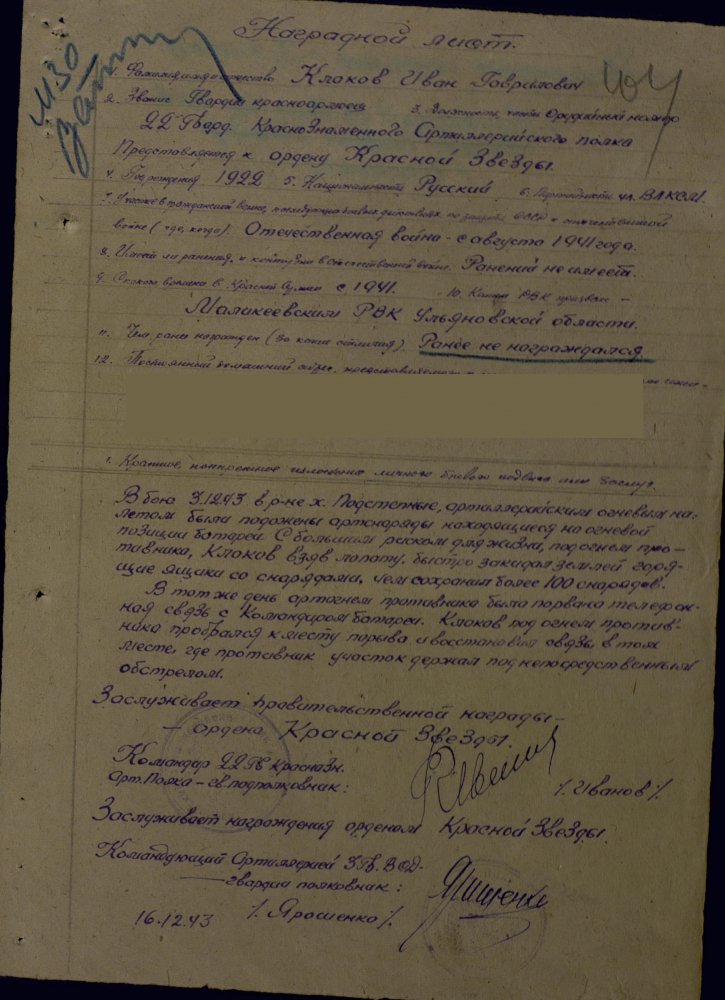 Наградной лист.
1. Фамилия имя отчество Клоков Иван Гаврилович
2. Звание Гвардии красноармеец 3. Должность, часть Орудийный номер
22 Гверд. Краснознаменного Артиллерийского полка
Представляется к ордену Красной Звезды.
4. Год рождения 1922 5. Национальность Русский 6. Партийность чл. ВЛКСМ.
7. Участие в гражданской войне, последующих боевых действиях по защите СССР и отечественной
войне (где, когда). Отечественная война - с августа 1941 года.
8. Имеет ли ранения и контузии в отечественной войне. Ранений не имеет.
9. С какого времени в Красной Армии с 1941. 10. Каким РВК призван -
РВК Ульяновской области.
11. Чем ранее награжден (за какие отличия) Ранее не награждался
12. Постоянный домашний адрес, представляемого к
1. Краткое, конкретное изложение личного боевого подвига или заслуг.
В бою 3.12.43 в р-не х. Подстепные, артиллерийским огневым на-
летом были подожены артснаряды находящиеся на огневой
позиции батареи. С большим риском для жизни, под огнем про-
тивника, Клоков взяв лопату, быстро закидал землей горя-
щие ящики со снарядами, чем сохранил более 100 снарядов.
В тот же день артогнем противника была порвана телефон-
ная связь с командиром батареи. Клоков под огнем против-
ника пробрался к месту порыва и восстановил связь, в том
месте, где противник участок держал под непосредственным
обстрелом.
Заслуживает правительственной награды -
- ордена Красной Звезды.
Командир 22 Гв. Краснозн.
Арт. Полка - гв. подполковник: /. Иванов /.
Заслуживает награждения орденом Красной Звезды.
Командующий Артиллерией 3 Гв.
гвардии полковник:
16.12.43 /. Ярошенко /.